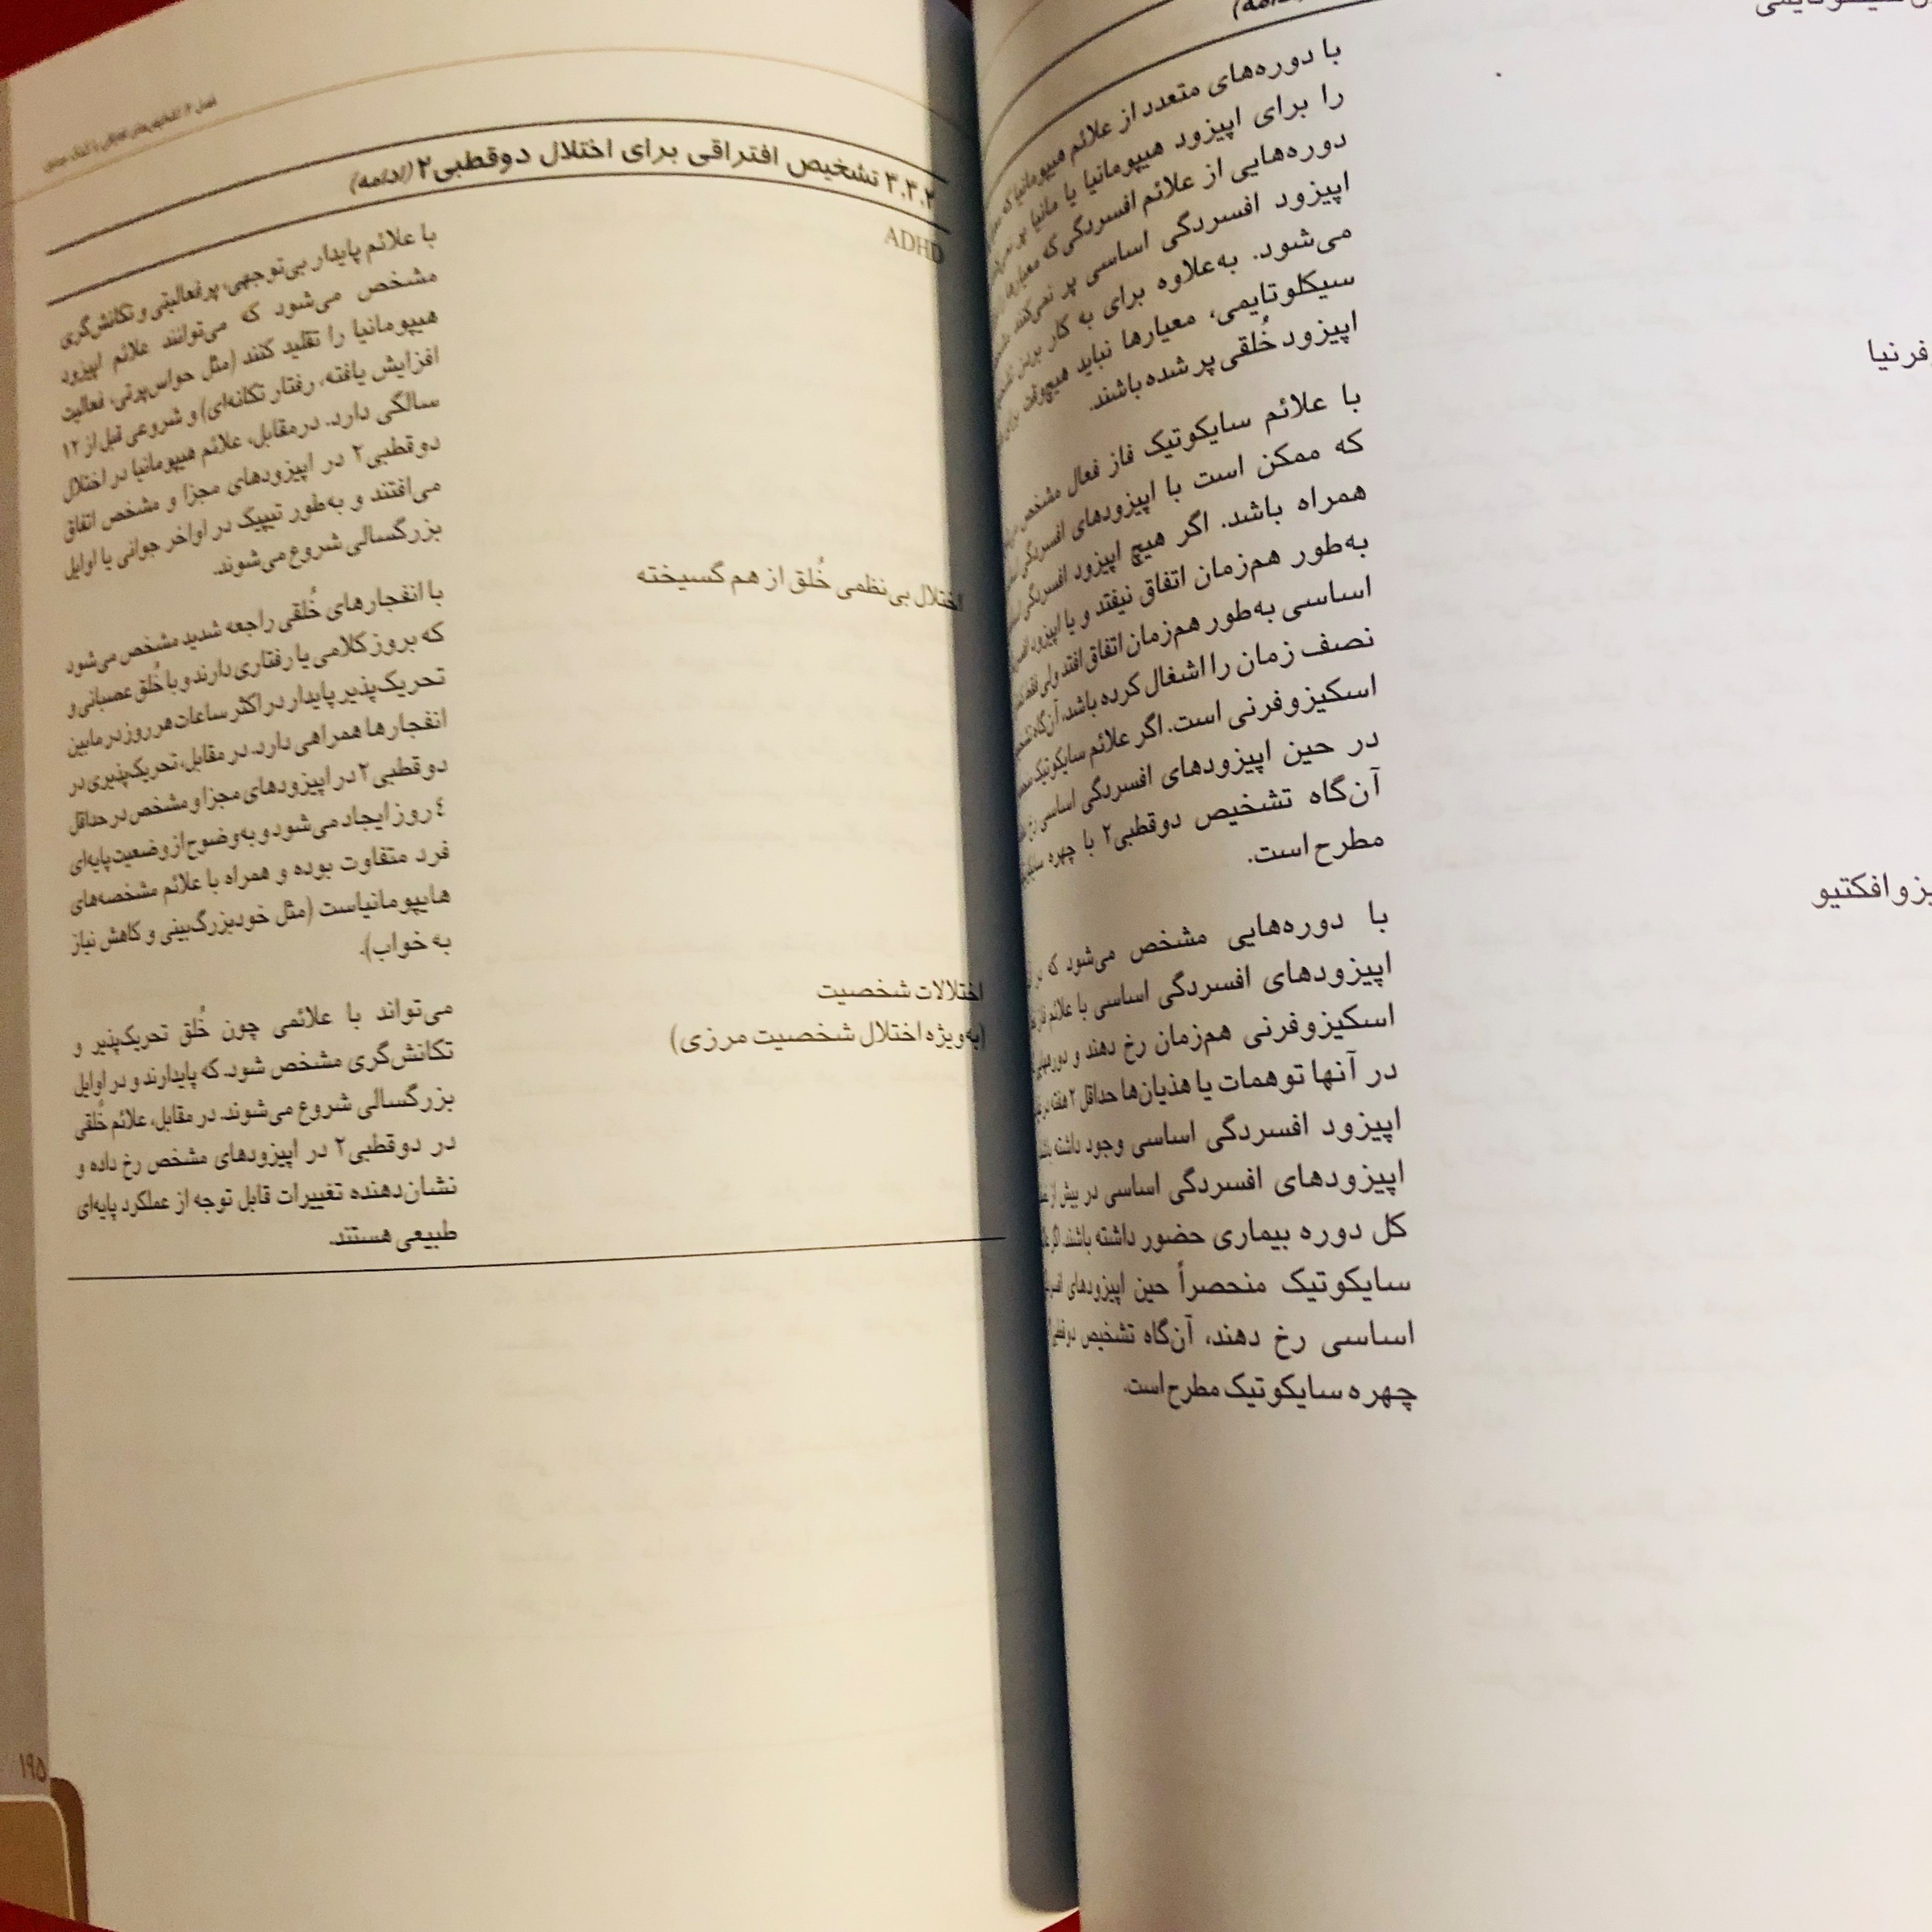 (ادامه)
با دوره‌های متعدد از علائم هیپومانیا که
را برای اپیزود هیپومانیا یا مانیا پر
دوره‌هایی از علائم افسردگی که معیارها
اپیزود افسردگی اساسی پر نمی‌کنند
می‌شود. به‌علاوه برای به کار بردن
سیکلوتایمی، معیارها نباید هیچ‌وقت برای
اپیزود خُلقی پر شده باشند.
فرنیا
با علائم سایکوتیک فاز فعال مشخص
که ممکن است با اپیزودهای افسردگی
همراه باشد. اگر هیچ اپیزود افسردگی
به‌طور هم‌زمان اتفاق نیفتد و یا اپیزود
اساسی به‌طور هم‌زمان اتفاق افتد ولی فقط
نصف زمان را اشغال کرده باشد، آن‌گاه
اسکیزوفرنی است. اگر علائم سایکوتیک
در حین اپیزودهای افسردگی اساسی رخ
آن‌گاه تشخیص دوقطبی۲ با چهره
مطرح است.
زوافکتیو
با دوره‌هایی مشخص می‌شود که در
اپیزودهای افسردگی اساسی با علائم فاز
اسکیزوفرنی هم‌زمان رخ دهند و
در آنها توهمات یا هذیان‌ها حداقل ۲ هفته
اپیزود افسردگی اساسی وجود داشته
اپیزودهای افسردگی اساسی در بیش از
کل دوره بیماری حضور داشته باشند. اگر
سایکوتیک منحصراً حین اپیزودهای
اساسی رخ دهند، آن‌گاه تشخیص
چهره سایکوتیک مطرح است.
۳.۳.۲ تشخیص افتراقی برای اختلال دوقطبی۲ (ادامه)
ADHD
با علائم پایدار بی‌توجهی، پرفعالیتی و تکانش‌گری
مشخص می‌شود که می‌توانند علائم اپیزود
هیپومانیا را تقلید کنند (مثل حواس‌پرتی، فعالیت
افزایش یافته، رفتار تکانه‌ای) و شروعی قبل از ۱۲
سالگی دارد. درمقابل، علائم هیپومانیا در اختلال
دوقطبی۲ در اپیزودهای مجزا و مشخص اتفاق
می‌افتند و به‌طور تیپیک در اواخر جوانی یا اوایل
بزرگسالی شروع می‌شوند.
اختلال بی‌نظمی خُلق از هم گسیخته
با انفجارهای خُلقی راجعه شدید مشخص می‌شود
که بروز کلامی یا رفتاری دارند و با خُلق عصبانی و
تحریک‌پذیر پایدار در اکثر ساعات هر روز در مابین
انفجارها همراهی دارد. در مقابل، تحریک‌پذیری در
دوقطبی۲ در اپیزودهای مجزا و مشخص در حداقل
۴ روز ایجاد می‌شود و به‌وضوح از وضعیت پایه‌ای
فرد متفاوت بوده و همراه با علائم مشخصه‌های
هایپومانیاست (مثل خودبزرگ‌بینی و کاهش نیاز
به خواب).
اختلالات شخصیت
(به‌ویژه اختلال شخصیت مرزی)
می‌تواند با علائمی چون خُلق تحریک‌پذیر و
تکانش‌گری مشخص شود. که پایدارند و در اوایل
بزرگسالی شروع می‌شوند. در مقابل، علائم خُلقی
در دوقطبی۲ در اپیزودهای مشخص رخ داده و
نشان‌دهنده تغییرات قابل توجه از عملکرد پایه‌ای
طبیعی هستند.
۱۹۵